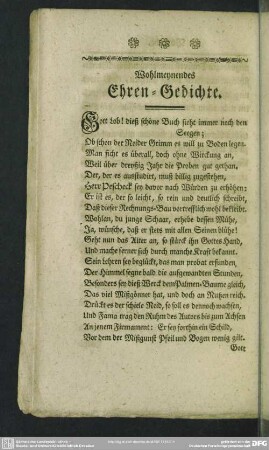 Wohlmeynendes
Ehren-Gedichte.
Gott Lob! dieß schöne Buch sieht immer noch den
Seegen;
Ob schon der Neider Grimm es will zu Boden legen.
Man sicht es überall, doch ohne Wirkung an,
Weil über dreyßig Jahr die Proben gut gethan,
Der, der es ausstudirt, muß billig zugestehen,
Herr Pescheck sey davor nach Würden zu erhöhen;
Er ist es, der so leicht, so rein und deutlich schreibt,
Daß dieser Rechnungs-Bau vortrefflich wohl bekleibt.
Wohlan, du junge Schaar, erhebe dessen Mühe,
Ja, wünsche, daß er stets mit allen Seinen blühe!
Geht nun das Alter an, so stärck ihn Gottes Hand,
Und mache ferner sich durch manche Kraft bekannt.
Sein Lehren sey beglückt, das man probat erfunden,
Der Himmel segne bald die aufgewandten Stunden,
Besonders sey dieß Werck dem Palmen-Baume gleich,
Das viel Mißgönner hat, und doch an Nutzen reich.
Drückt es der schiele Neid, so soll es dennoch machen,
Und Fama trag den Ruhm des Autors bis zum Achsen
An jenem Firmament: Er sey forthin ein Schild,
Vor dem der Mißgunst Pfeil und Bogen wenig gilt.
Gott